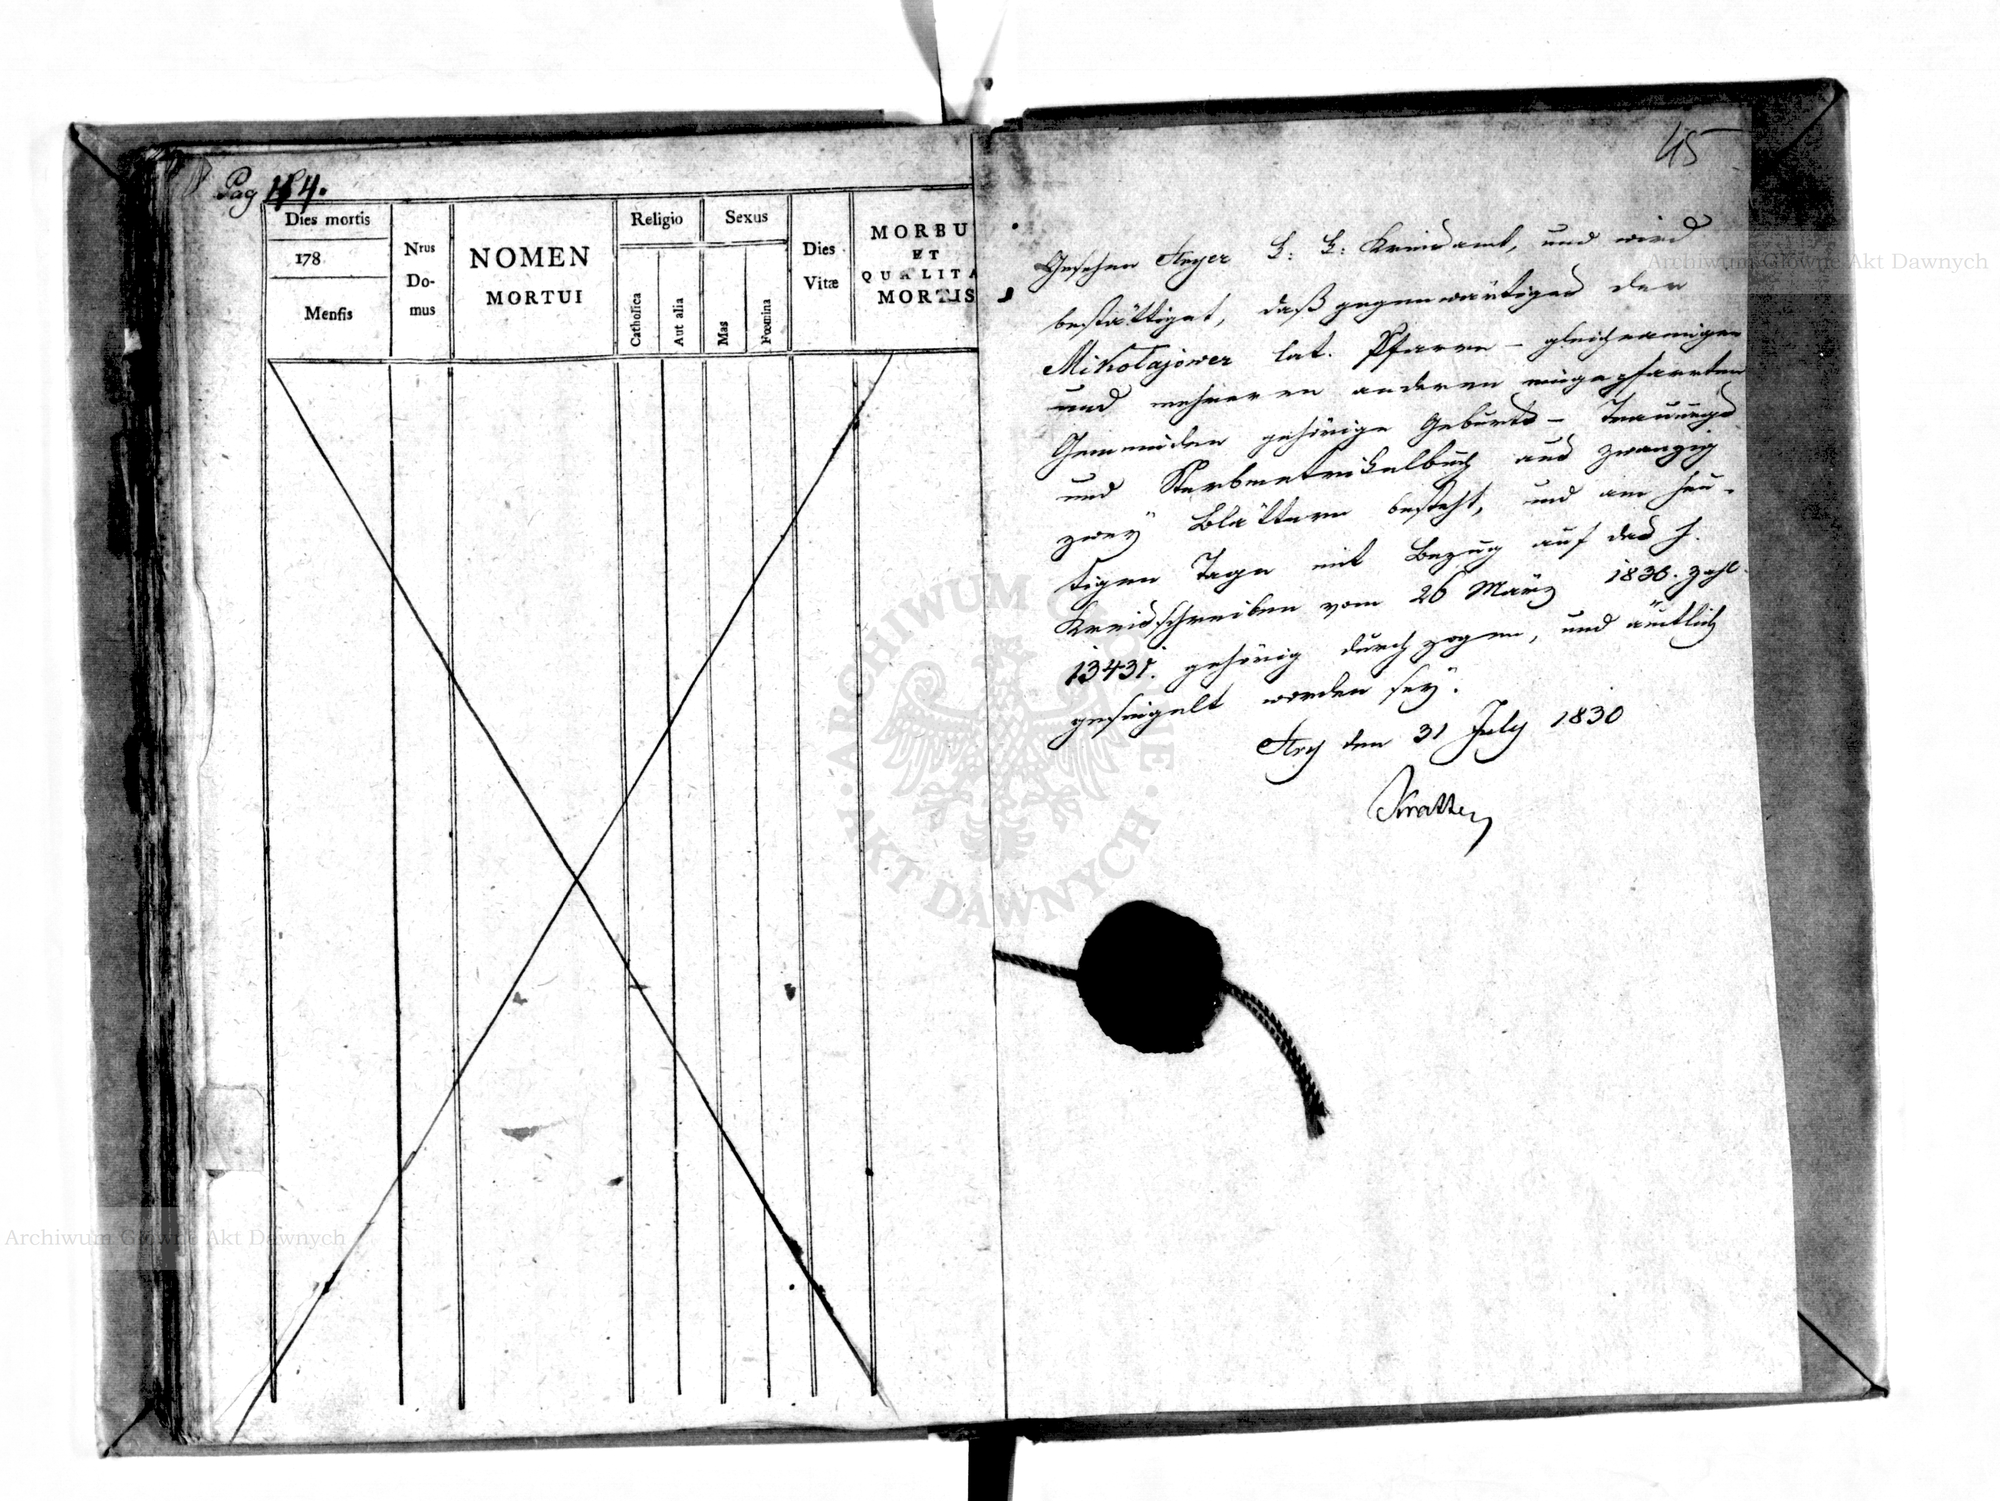 Pag 44.
Dies mortis
178
Mensis
Nrus
Do-
mus
NOMEN
MORTUI
Religio
Catholica
Aut alia
Sexus
Mas
Fœmina
Dies
Vitæ
MORBU
ET
QUALITA
MORTIS
45
Gesehen Stryer k: k: Kreisamt, und wird
bestättiget, daß gegenwärtiges der
Mikołajower lat. Pfarre – gleichnamigen
und mehreren anderen eingepfarrten
Gemeinden gehörige Geburts – Trauungs
und Sterbmatrikelbuch aus zwanzig
zwey Blättern besteht, und am heu-
tigen Tage mit Bezug auf das h.
Kreisschreiben vom 26 März 1830. Zahl
13431. gehörig durchzogen, und ämtlich
gesiegelt worden sey.
Stry den 31 July 1830
Archiwum Główne Akt Dawnych
Archiwum Główne Akt Dawnych
ARCHIWUM GŁÓWNE
AKT DAWNYCH